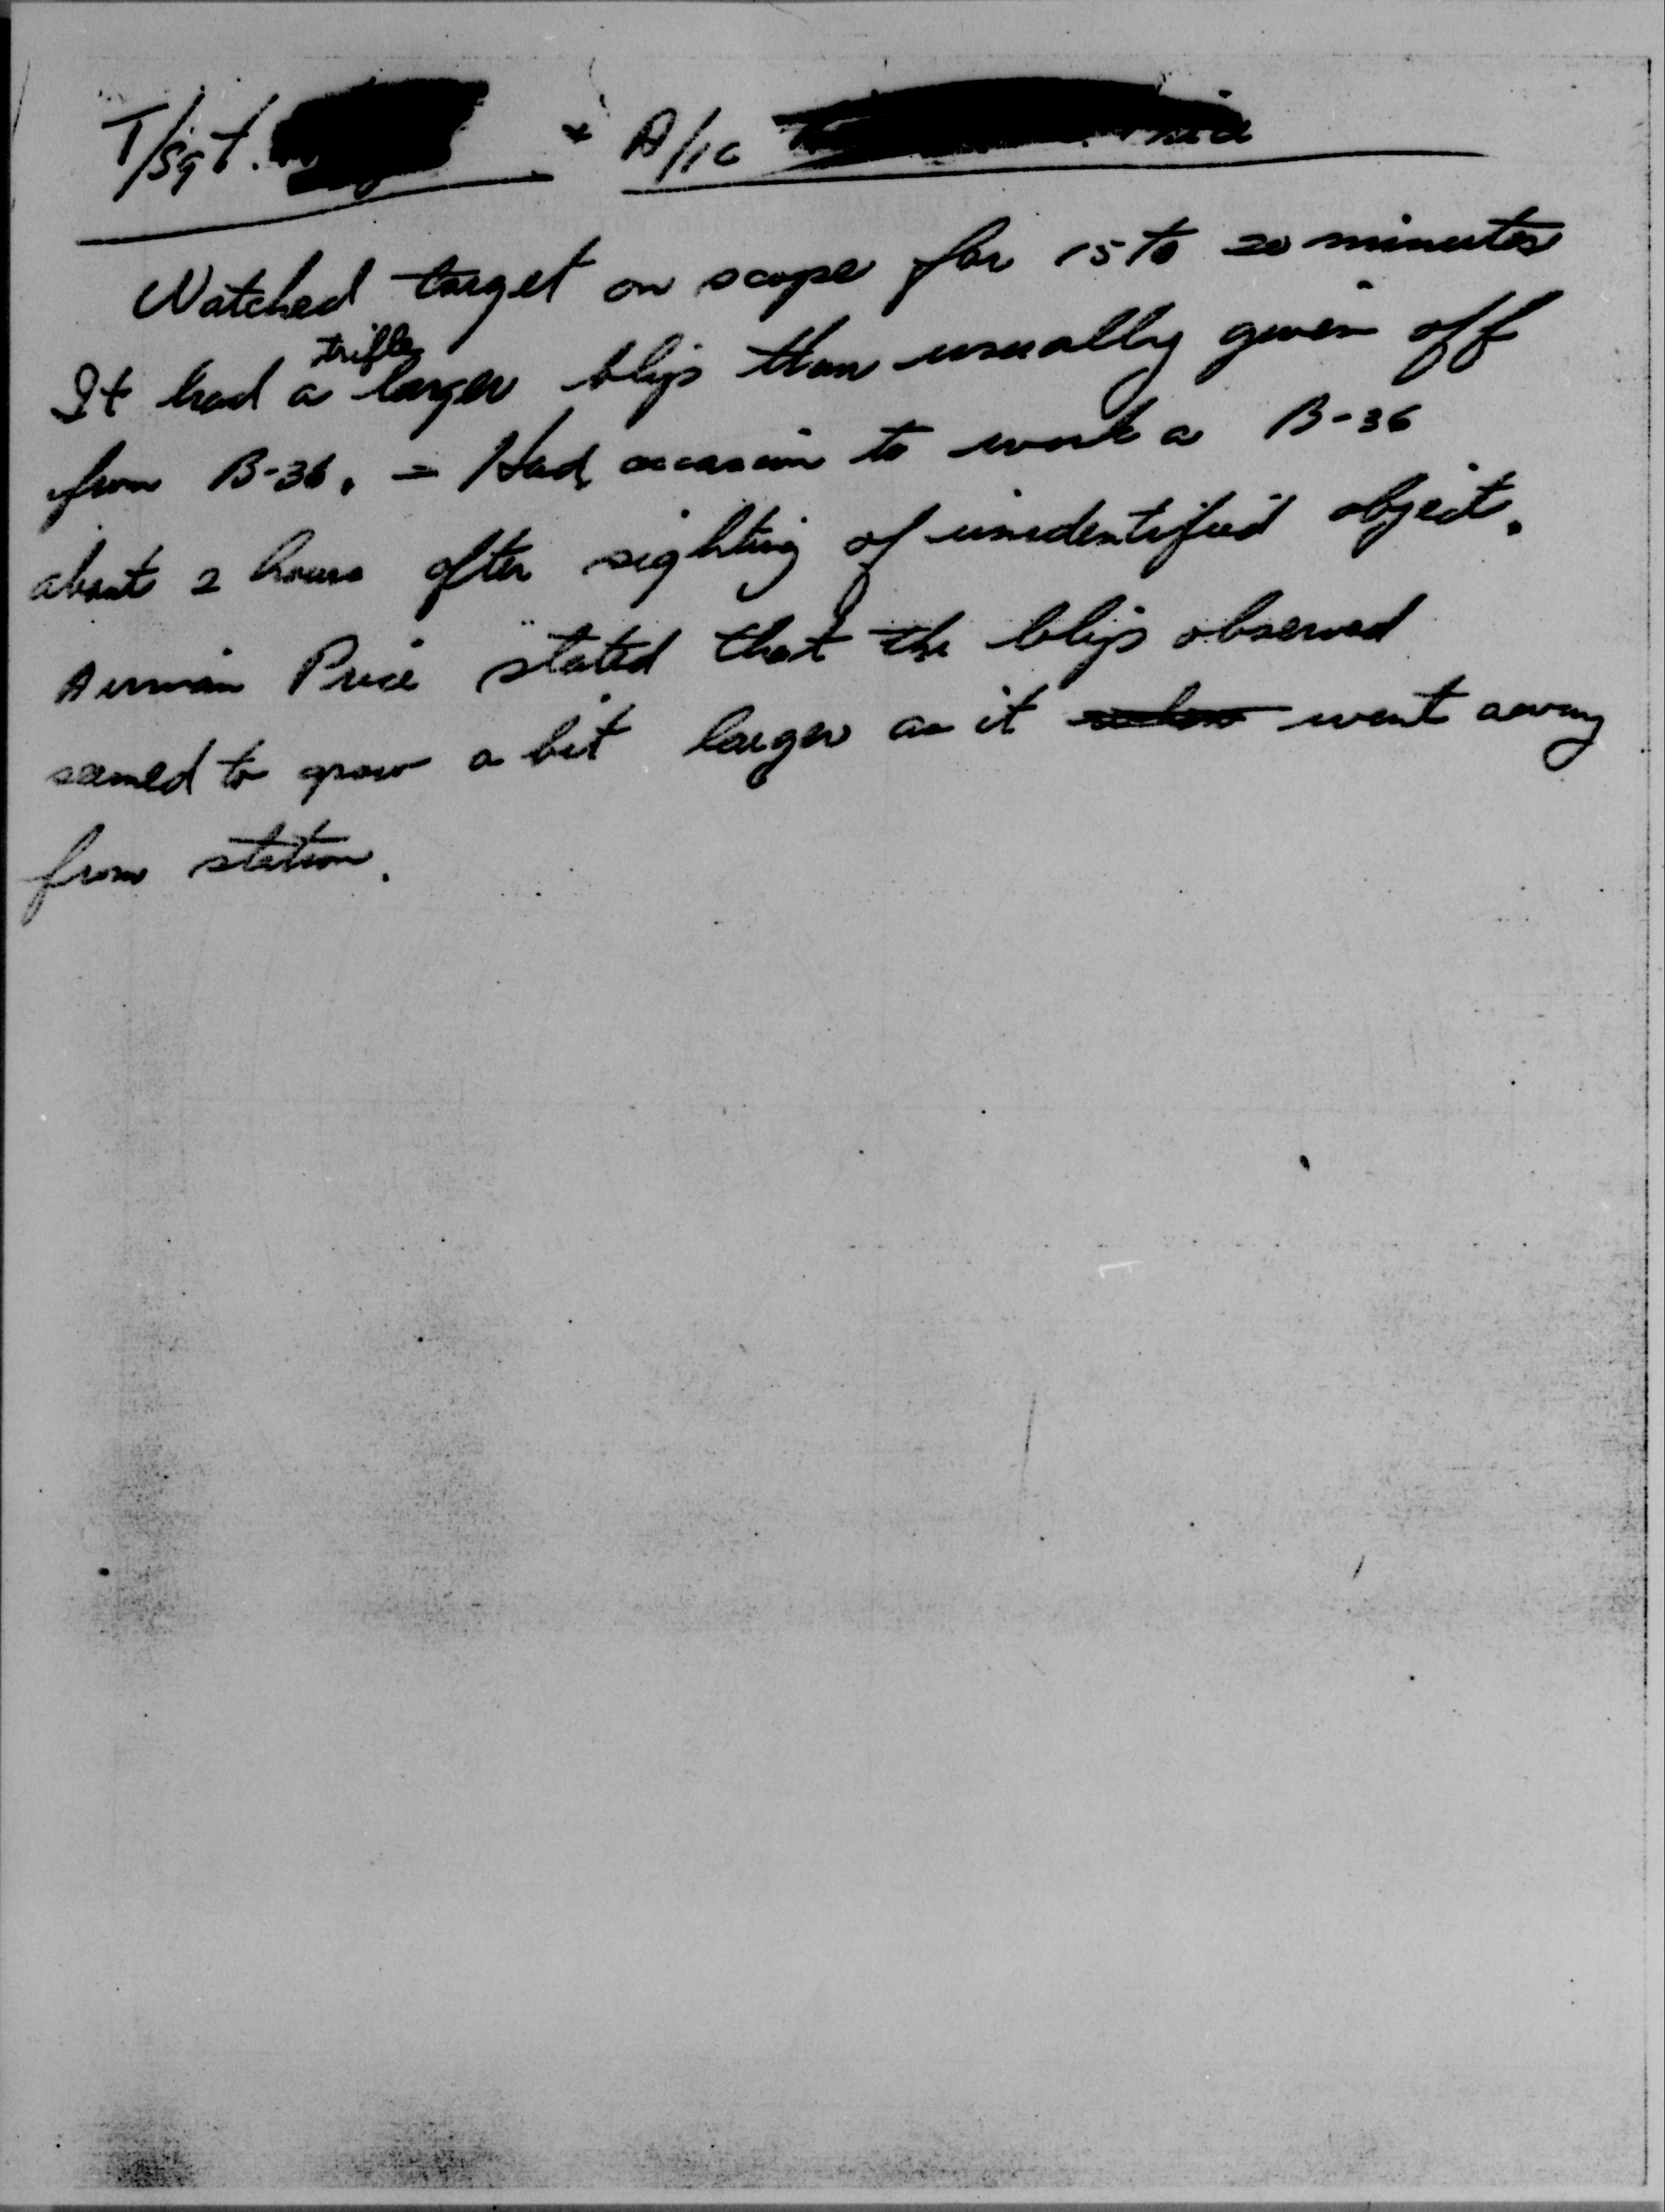 T/Sgt. & A/1c
Watched target on scope for 15 to 20 minutes
trifle
It had a larger blip than usually given off
from B-36. = Had occasion to work a B-36
about 2 hours after sighting of unidentified object.
Airman Price stated that the blip observed
seemed to grow a bit larger as it went away
from station.